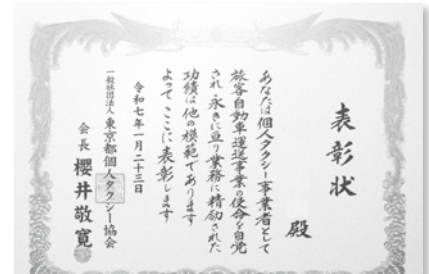 表彰状
殿
あなたは個人タクシー事業者として
旅客自動車運送事業の使命を自覚
され 永きに亘り業務に精励された
功績は他の模範であります
よってここに表彰します
令和七年一月二十三日
一般社団法人 東京都個人タクシー協会
会長 櫻井敬寛